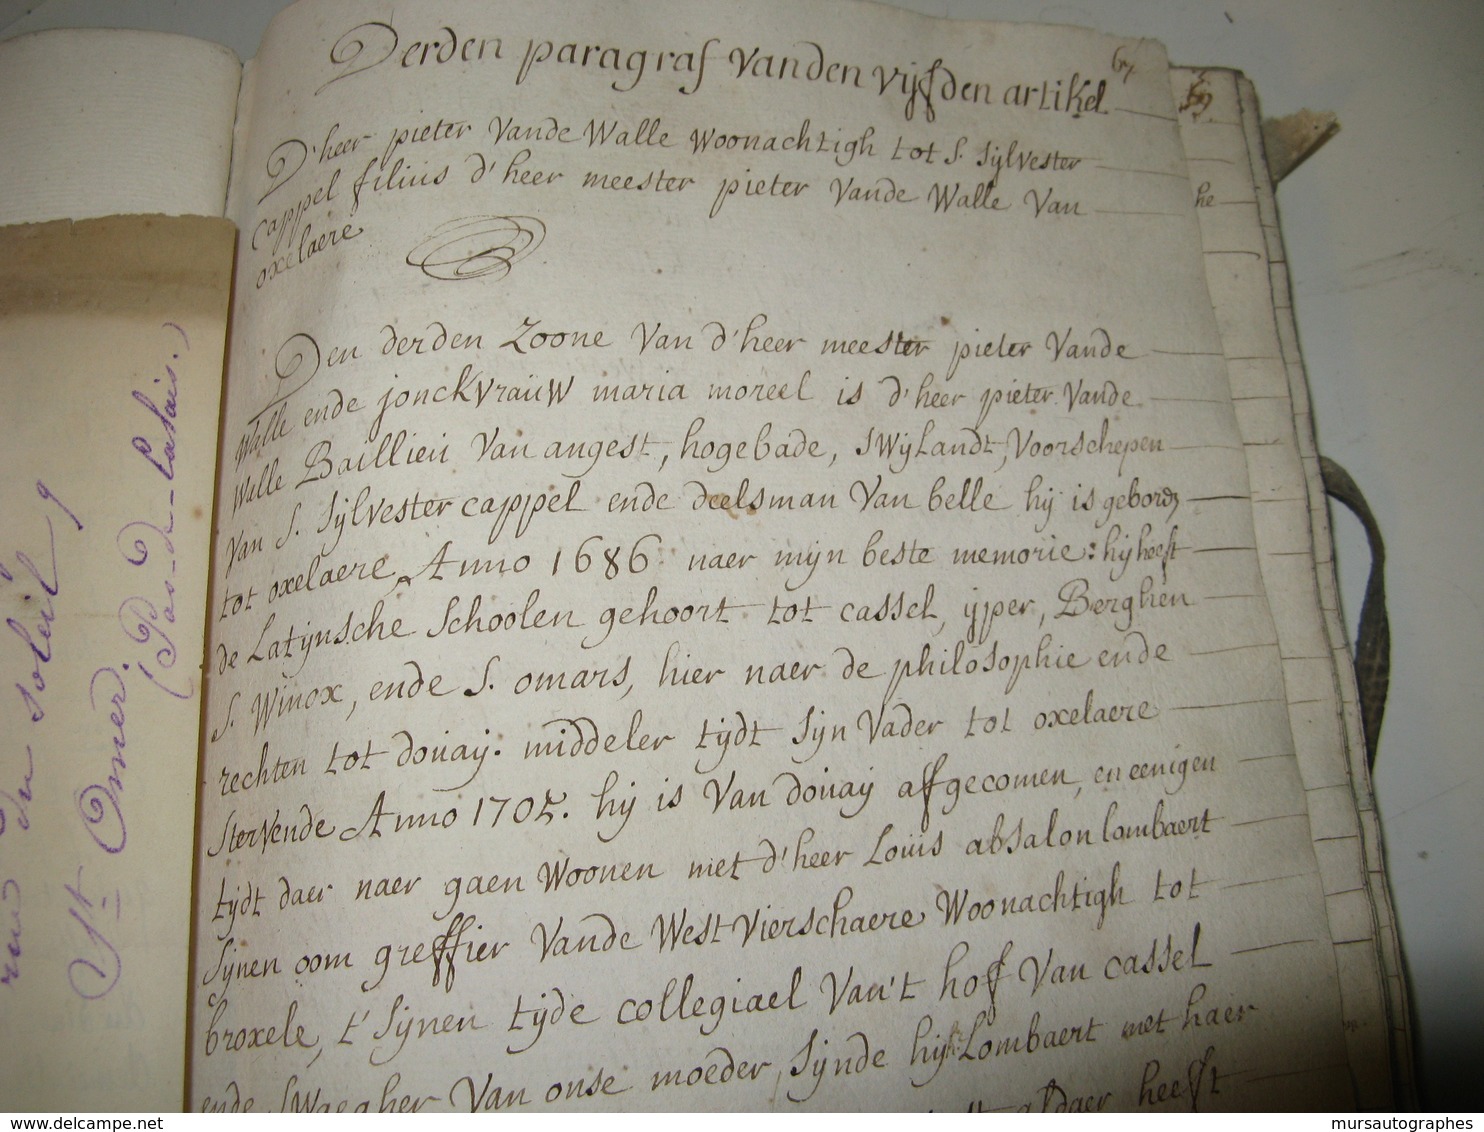 Derden paragraf vanden vijfden artikel
67
D'heer pieter vande Walle woonachtigh tot S. Sijlvester
cappel filius d'heer meester pieter vande Walle van
oxelaere
he
Den derden zoone van d'heer meester pieter vande
Walle ende jonckvrauw maria moreel is d'heer pieter vande
Walle Baillieu van angest, hogebade, swijlandt, voorschepen
van S. Sijlvester cappel ende deelsman van belle hij is geboren
tot oxelaere Anno 1686 naer mijn beste memorie: hij heeft
de Latijnsche schoolen gehoort tot cassel, ijper, Berghen
S. Winox, ende S. omars, hier naer de philosophie ende
rechten tot douaij. middeler tijdt sijn vader tot oxelaere
stervende Anno 1705. hij is van douaij afgecomen, en eenigen
tijdt daer naer gaen woonen met d'heer Louis absalon lombaert
sijnen oom greffier vande West vierschaere woonachtigh tot
broxele, t'sijnen tijde collegiael van't hof van cassel
ende swaegher van onse moeder, sijnde hij Lombaert met haer
aldaer heeft
du soleil 9
St Omer.
(Pas-de-Calais.)
www.delcampe.net
mursautographes